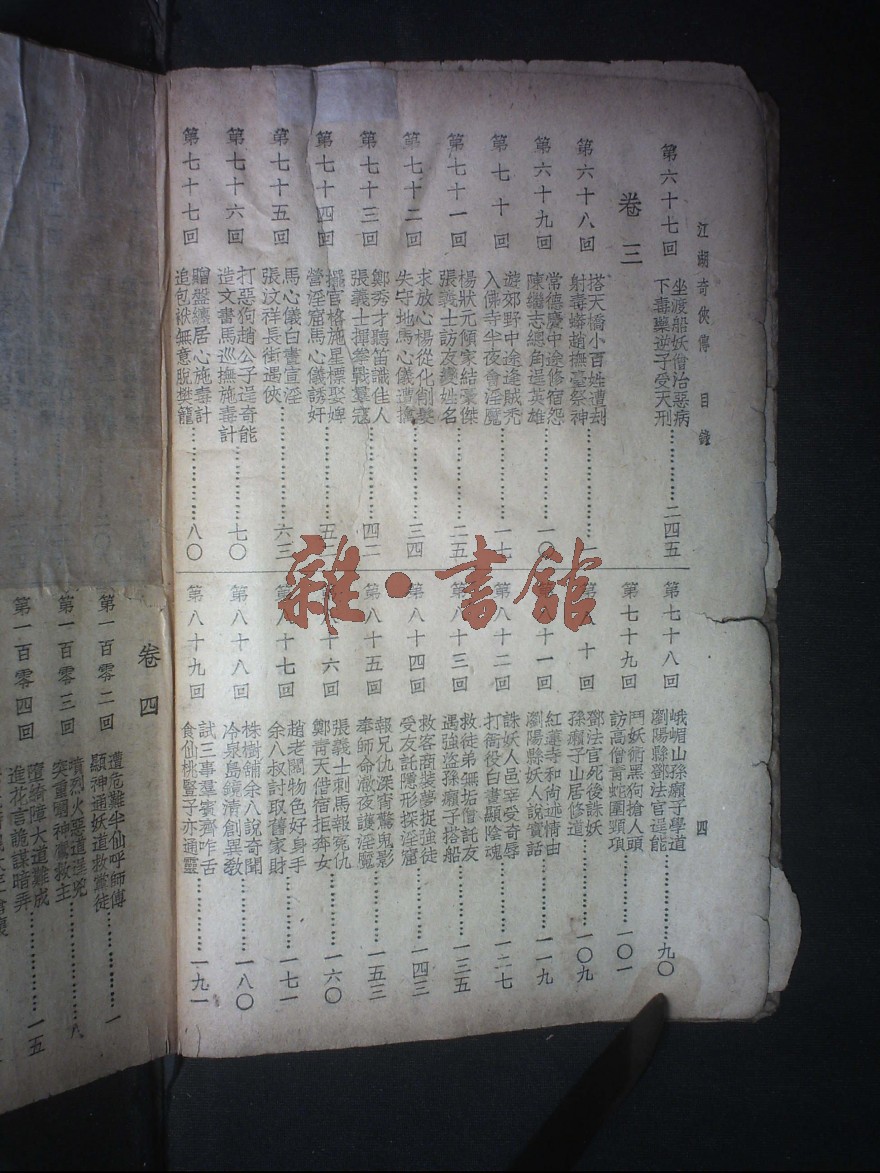 江湖奇俠傳 目錄
四
第六十七回 坐渡船妖僧治惡病 下毒藥逆子受天刑 二四五
卷三
第六十八回 搭天橋小百姓遭刦 射毒蟒趙撫臺祭神 一
第六十九回 常德慶中途修宿怨 陳繼志總角逞英雄 一〇
第七十回 遊郊野中途逢賊禿 入佛寺半夜會淫魔 一七
第七十一回 楊狀元傾家結豪傑 張義士訪友變姓名 二五
第七十二回 求放心楊從化削髮 失守地馬心儀遭擒 三四
第七十三回 鄭秀才聽笛識佳人 張義士揮拳戰羣寇 四二
第七十四回 擺官格施星標娶婢 營淫窟馬心儀誘奸 五
第七十五回 馬心儀白晝宣淫 張汶祥長街遇俠 六三
第七十六回 打惡狗趙公子逞奇能 造文書馬巡撫施毒計 七〇
第七十七回 贈盤纏居心施毒計 追包袱無意脫樊籠 八〇
第七十八回 峨嵋山孫癩子學道 瀏陽縣鄧法官逞能 九〇
第七十九回 鬥妖術黑狗搶人頭 訪高僧青蛇圍頸項 一〇一
第八十回 鄧法官死後誅妖 孫癩子山居修道 一〇九
第八十一回 紅蓮寺和尚述情由 瀏陽縣妖人說實話 一一九
第八十二回 誅妖人邑宰受奇辱 打衙役白晝顯陰魂 一二七
第八十三回 救徒弟無垢僧託友 遇強盜孫癩子搭船 一三五
第八十四回 救客商裝夢捉強徒 受友託隱形探淫窟 一四三
第八十五回 報兄仇深宵驚鬼影 奉師命澈夜護淫魔 一五三
第八十六回 張義士刺馬報冤仇 鄭青天借宿拒奔女 一六〇
第八十七回 趙老闆物色好身手 余八叔討取舊家財 一七一
第八十八回 株樹舖余八說奇聞 冷泉島鏡清創異敎 一八〇
第八十九回 試三事羣賓齊咋舌 食仙桃豎子亦通靈 一九一
卷四
第一百零二回 遭危難半仙呼師傅 顯神通妖道救黨徒 一
第一百零三回 噴烈火惡道逞兇 突重圍神鷹救主 八
第一百零四回 墮綺障大道難成 進花言詭謀暗弄 一五
雜·書館